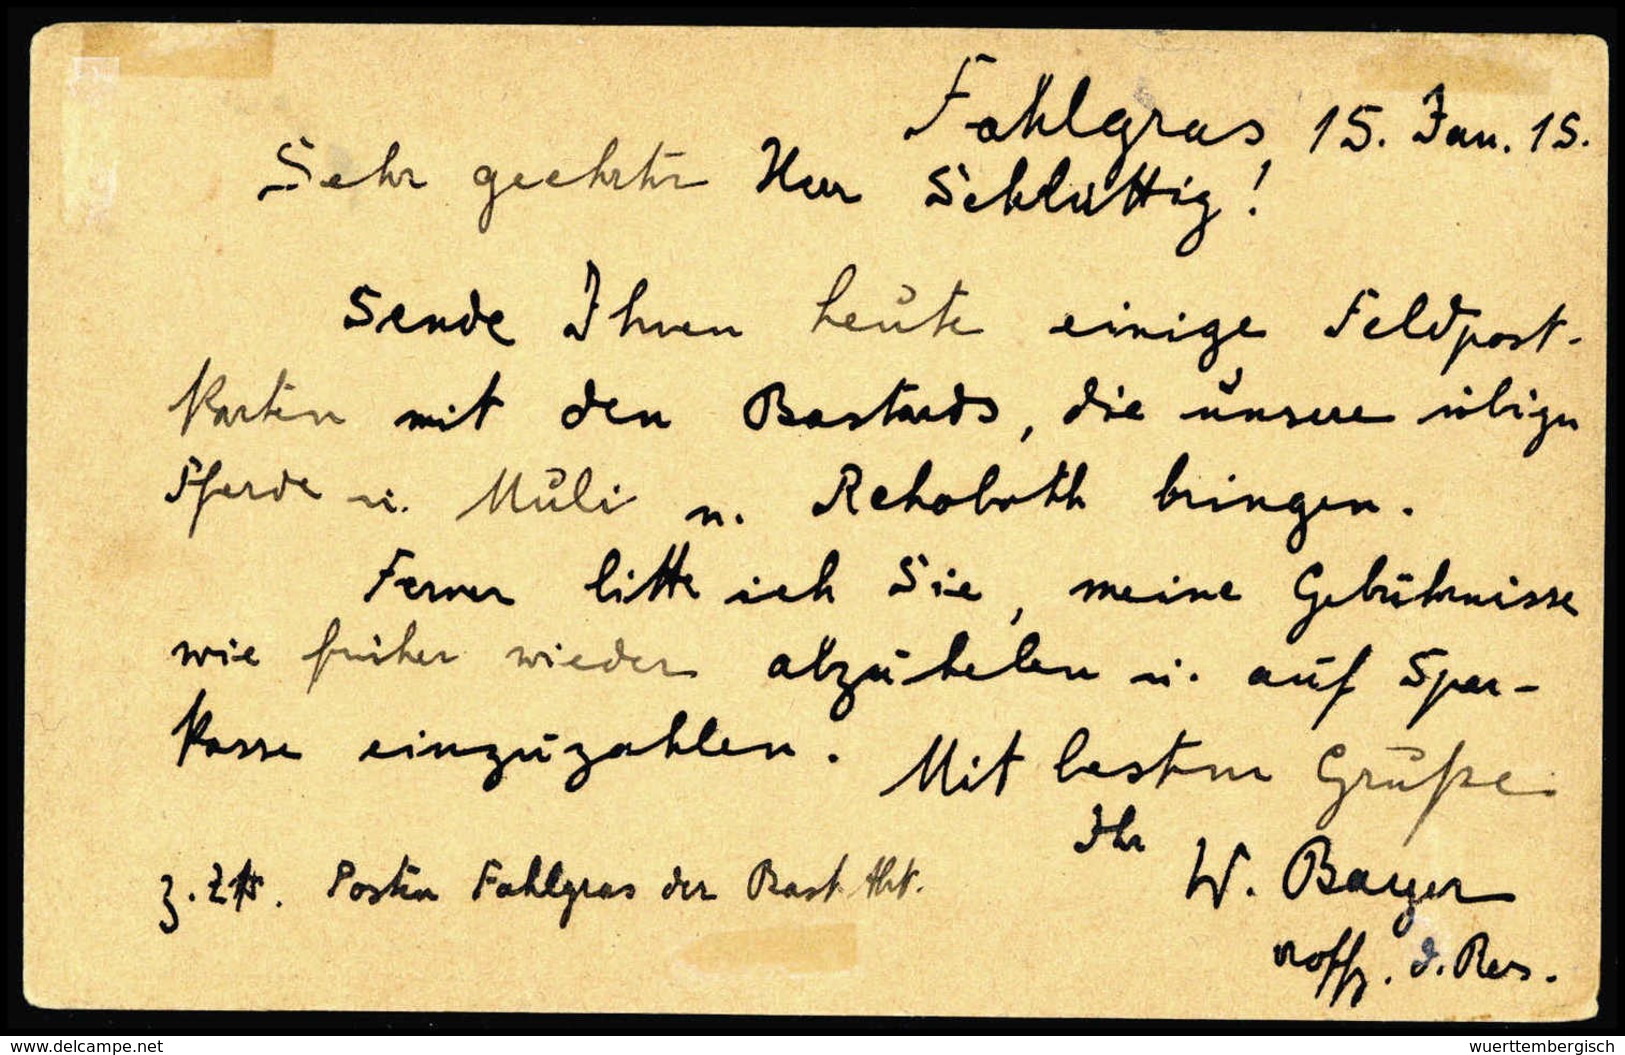 Fahlgras 15. Jan. 15.
Sehr geehrter Herr Schluttig!
Sende Ihnen heute einige Feldpost-
karten mit den Bastards, die unsere übrigen
Pferde u. Muli n. Rehoboth bringen.
Ferner bitte ich Sie, meine Gebührnisse
wie früher wieder abzuheben u. auf Spar-
kasse einzuzahlen. Mit besten Grüße
Ihr
W. Bayer
z. Zt. Posten Fahlgras der Bast. Abt.
Uoffz. d. Res.
www.delcampe.net
wuerttembergisch